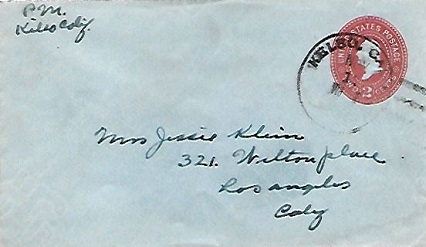 P.M.
Kelso Calif.
KELSO, C
UNITED STATES POSTAGE
2
Mrs Jessie Klein
321. Wilton place
Los angeles
Calif